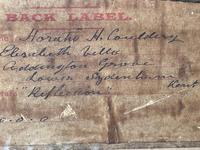 BACK LABEL.
Horatio H. Couldery
Elizabeth Villa
Addington Grove
Lower Sydenham
Kent
"Reflection"